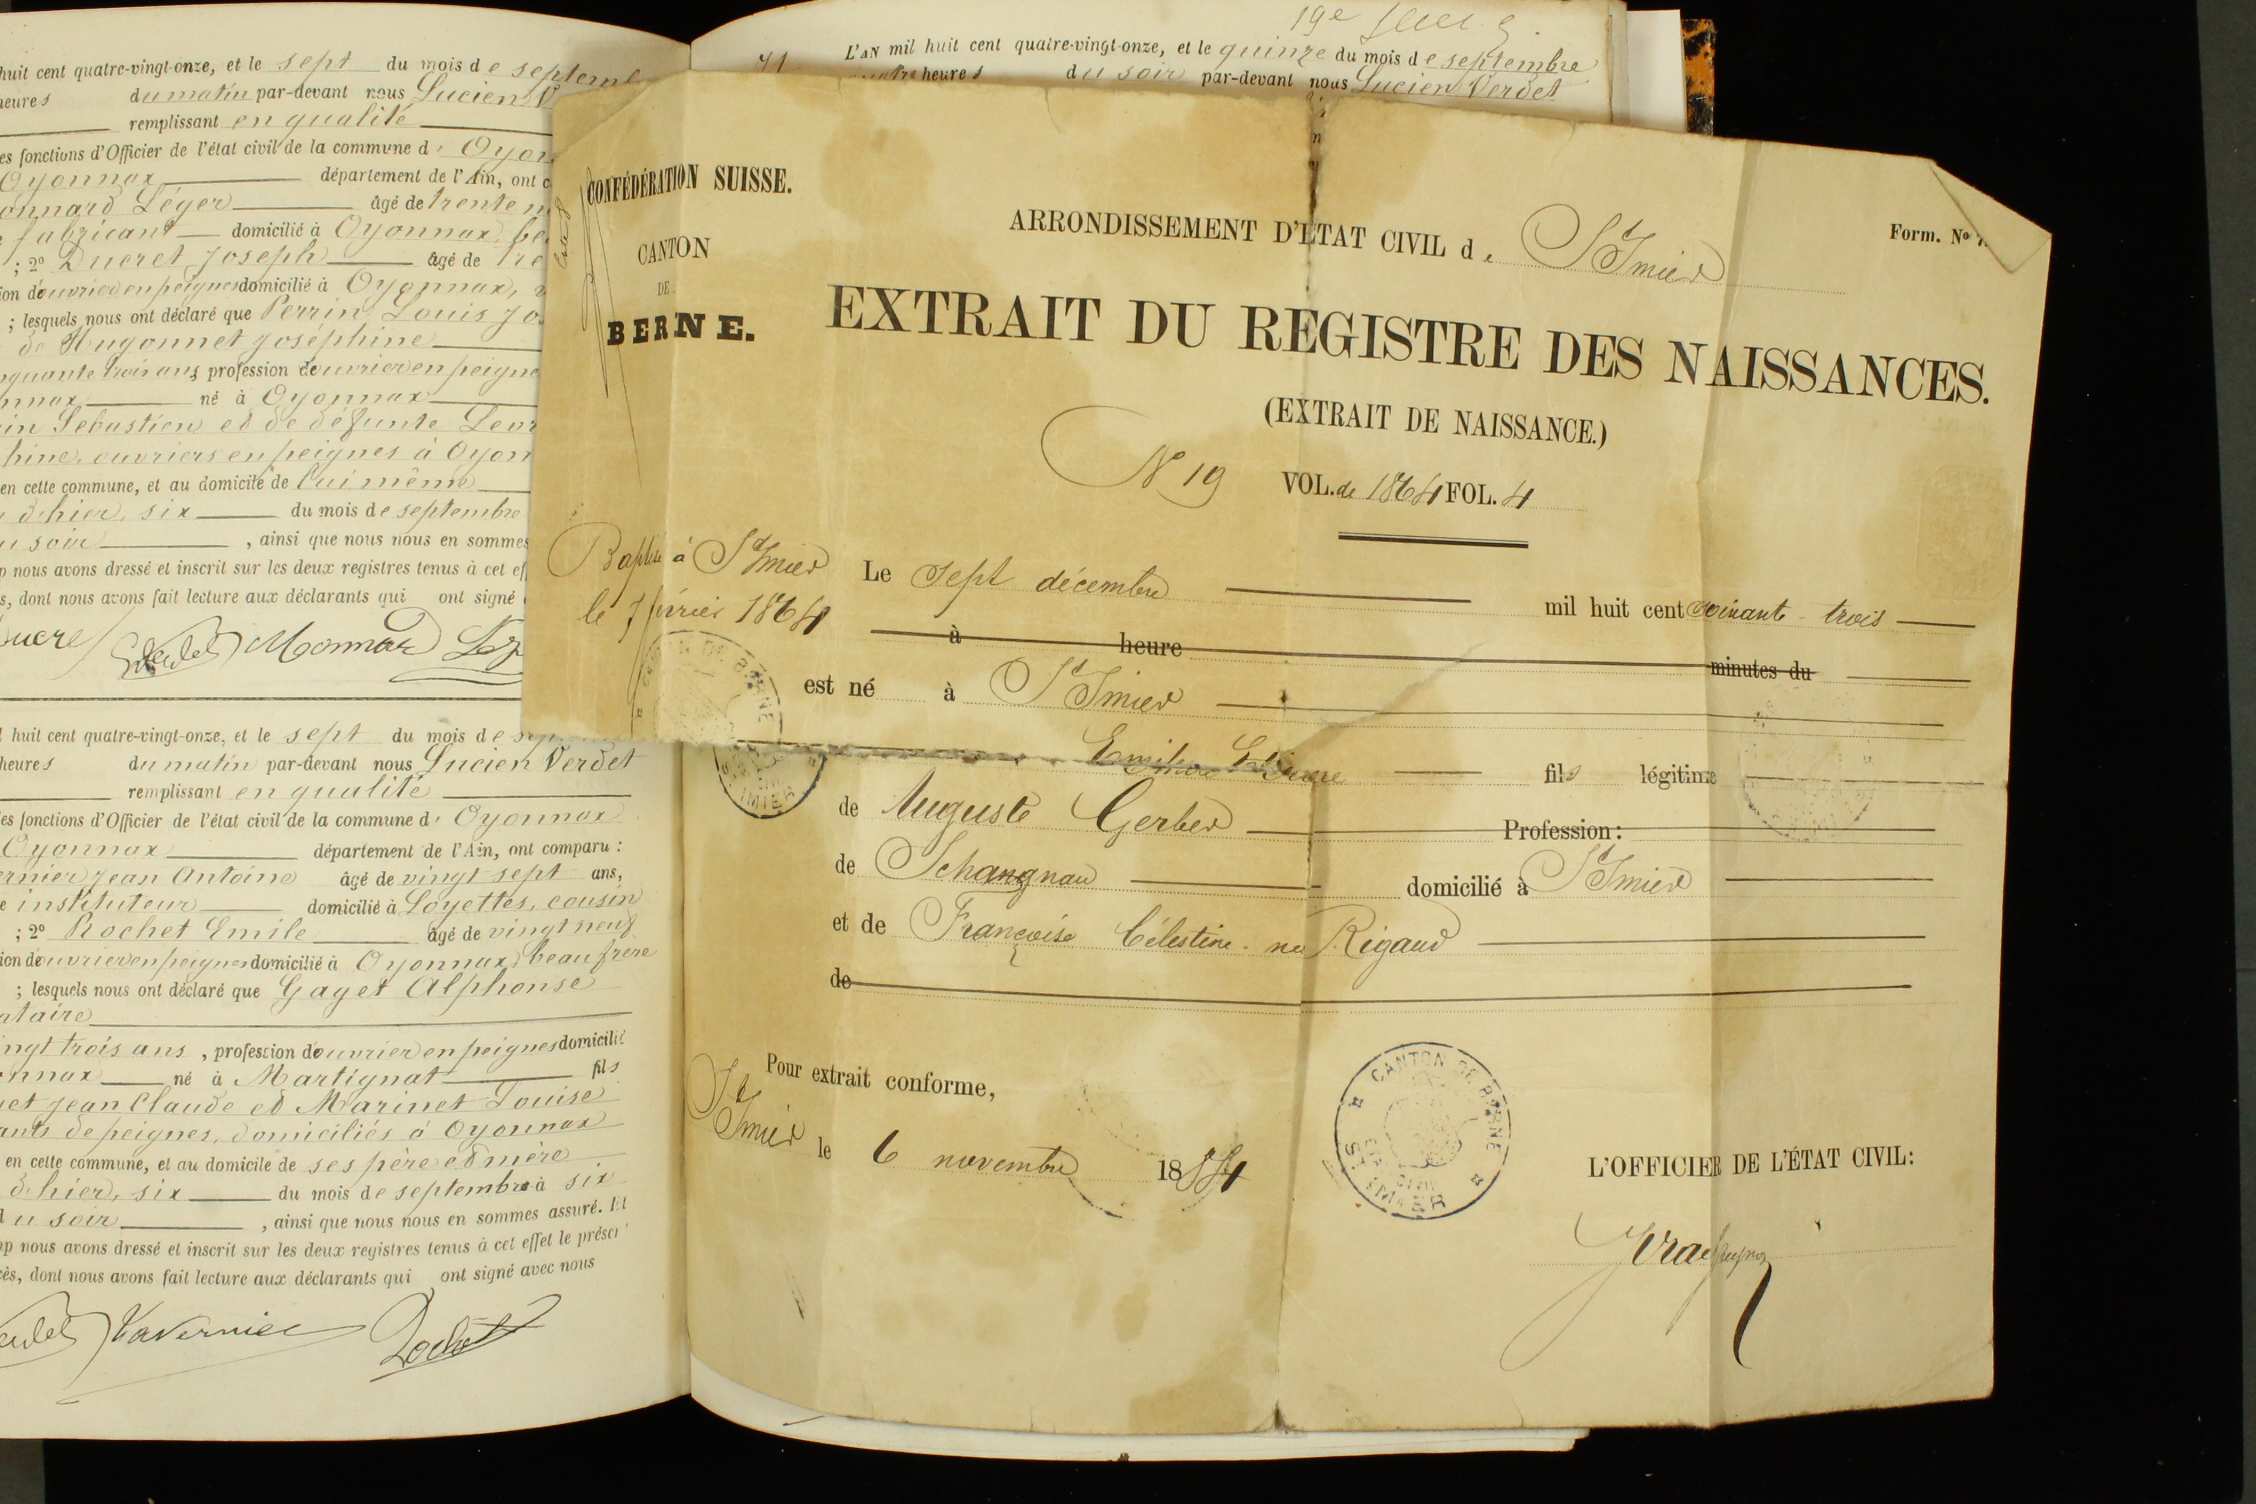 huit cent quatre-vingt-onze, et le sept du mois de septem
heures du matin par-devant nous Lucien V
remplissant en qualité
es fonctions d'Officier de l'état civil de la commune d' Oyon
Oyonnax département de l'Ain, ont c
onnard Léger âgé de trente n
fabricant domicilié à Oyonnax, be
; 2° Ducret Joseph âgé de tre
ion d'ouvrier en peignes domicilié à Oyonnax, v
; lesquels nous ont déclaré que Perrin Louis Jo
de Hugonnet Joséphine
nquante trois ans, profession d'ouvrier en peigne
nnax né à Oyonnax
in Sébastien et de défunte Levr
hine, ouvriers en peignes à Oyon
en cette commune, et au domicile de lui même
d'hier, six du mois de septembre
u soir , ainsi que nous nous en sommes
p nous avons dressé et inscrit sur les deux registres tenus à cet ef
s, dont nous avons fait lecture aux déclarants qui ont signé
Ducret Verdet Monnard Lég
l huit cent quatre-vingt-onze, et le sept du mois de sep
heures du matin par-devant nous Lucien Verdet
remplissant en qualité
es fonctions d'Officier de l'état civil de la commune d' Oyonnax
Oyonnax département de l'Ain, ont comparu :
ernier Jean Antoine âgé de vingt sept ans,
e instituteur domicilié à Loyettes, cousin
; 2° Rochet Emile âgé de vingt neuf
ion d'ouvrier en peignes domicilié à Oyonnax, beau frère
; lesquels nous ont déclaré que Gaget Alphonse
ataire
ingt trois ans, profession d'ouvrier en peignes domicilié
onnax né à Martignat fils
et Jean Claude et Marinet Louise
ants de peignes, domiciliés à Oyonnax
en cette commune, et au domicile de ses père et mère
d'hier, six du mois de septembre à six
du soir , ainsi que nous nous en sommes assuré. Et
p nous avons dressé et inscrit sur les deux registres tenus à cet effet le présen
cès, dont nous avons fait lecture aux déclarants qui ont signé avec nous
Verdet Tavernier Rochet
71 L'AN mil huit cent quatre-vingt-onze, et le quinze du mois de septembre
quatre heures du soir par-devant nous Lucien Verdet
CONFÉDÉRATION SUISSE.
CANTON
DE
BERNE.
ARRONDISSEMENT D'ÉTAT CIVIL de St Imier
Form. No
EXTRAIT DU REGISTRE DES NAISSANCES.
(EXTRAIT DE NAISSANCE.)
No 19 VOL. de 1864 FOL. 4
Baptisé à St Imier
le 7 février 1864
Le sept décembre mil huit cent soixante-trois
à heure minutes du
est né à St Imier
fils légitime
de Auguste Gerber Profession:
de Schangnau domicilié à St Imier
et de Françoise Célestine née Rigaud
de
Pour extrait conforme,
St Imier le 6 novembre 1884
CANTON DE BERNE
ST. IMIER
L'OFFICIER DE L'ÉTAT CIVIL: